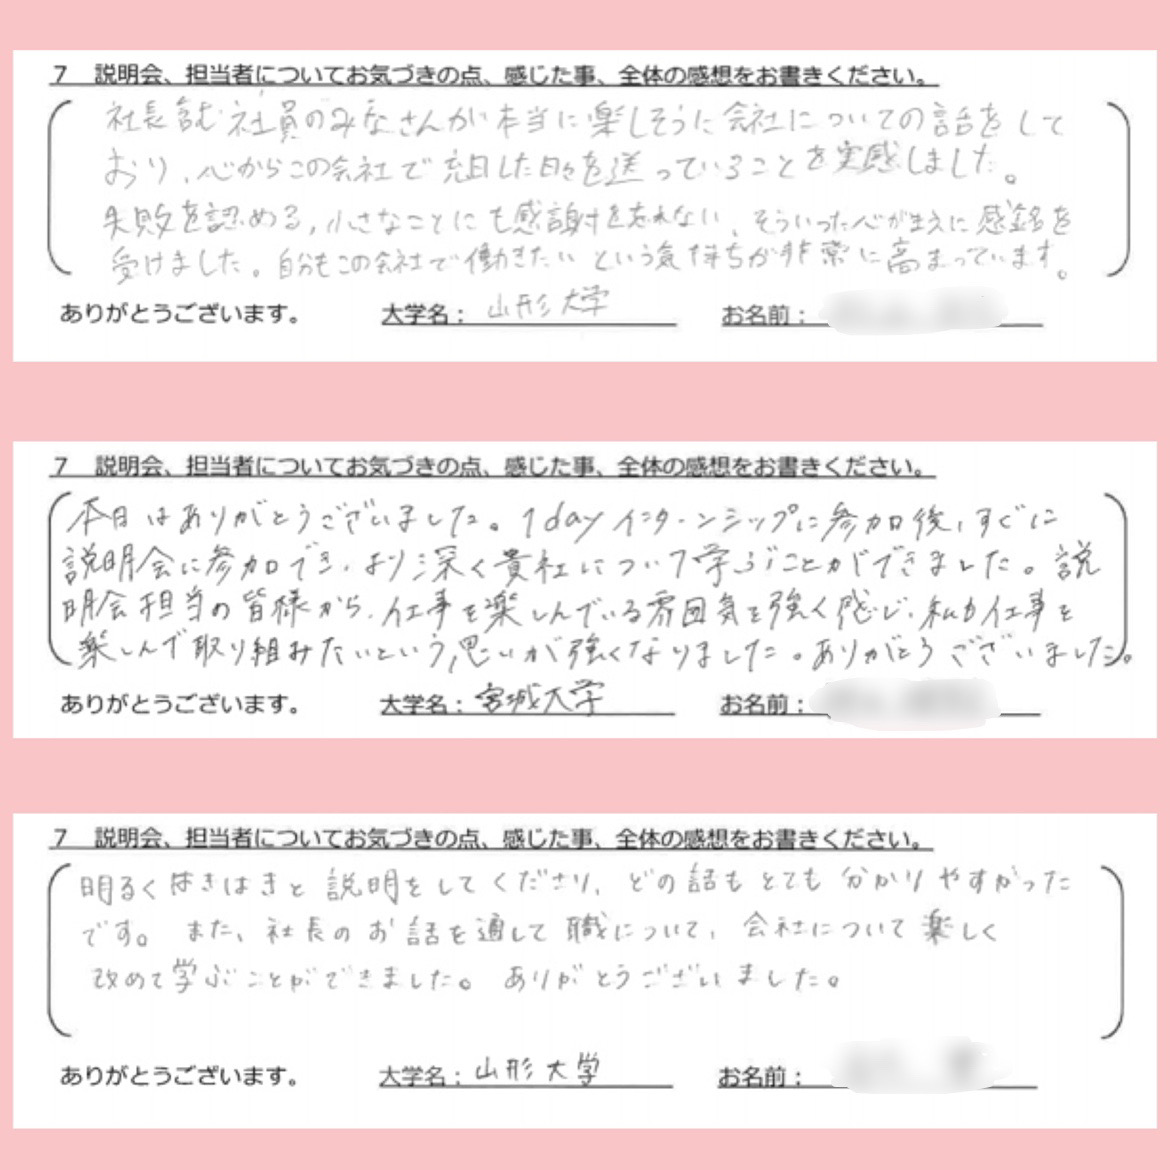 7 説明会、担当者についてお気づきの点、感じた事、全体の感想をお書きください。
社長含む社員のみなさんが本当に楽しそうに会社についての話をして
おり、心からこの会社で充実した日々を送っていることを実感しました。
失敗を認める、小さなことにも感謝を忘れない、そういった心がまえに感銘を
受けました。自分もこの会社で働きたいという気持ちが非常に高まっています。
ありがとうございます。 大学名：山形大学 お名前：
7 説明会、担当者についてお気づきの点、感じた事、全体の感想をお書きください。
本日はありがとうございました。1dayインターンシップに参加後、すぐに
説明会に参加でき、より深く貴社について学ぶことができました。説
明会担当の皆様から、仕事を楽しんでいる雰囲気を強く感じ、私も仕事を
楽しんで取り組みたいという思いが強くなりました。ありがとうございました。
ありがとうございます。 大学名：宮城大学 お名前：
7 説明会、担当者についてお気づきの点、感じた事、全体の感想をお書きください。
明るくはきはきと説明をしてくださり、どの話もとても分かりやすかった
です。また、社長のお話を通して職について、会社について楽しく
改めて学ぶことができました。ありがとうございました。
ありがとうございます。 大学名：山形大学 お名前：